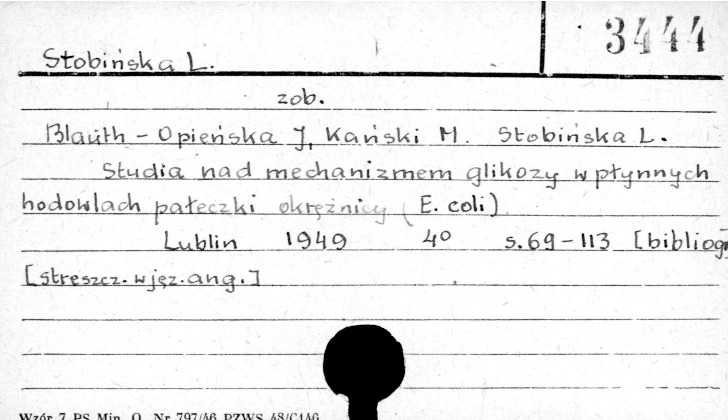 3444
Stobińska L.
zob.
Blauth-Opieńska J, Kański M. Stobińska L.
Studia nad mechanizmem glikozy w płynnych
hodowlach pałeczki okrężnicy (E. coli)
Lublin 1949 4° s.69-113 [bibliogr
[streszcz. w jęz. ang.]
Wzór 7 PS Min. O. Nr 797/46 PZWS 48/C146